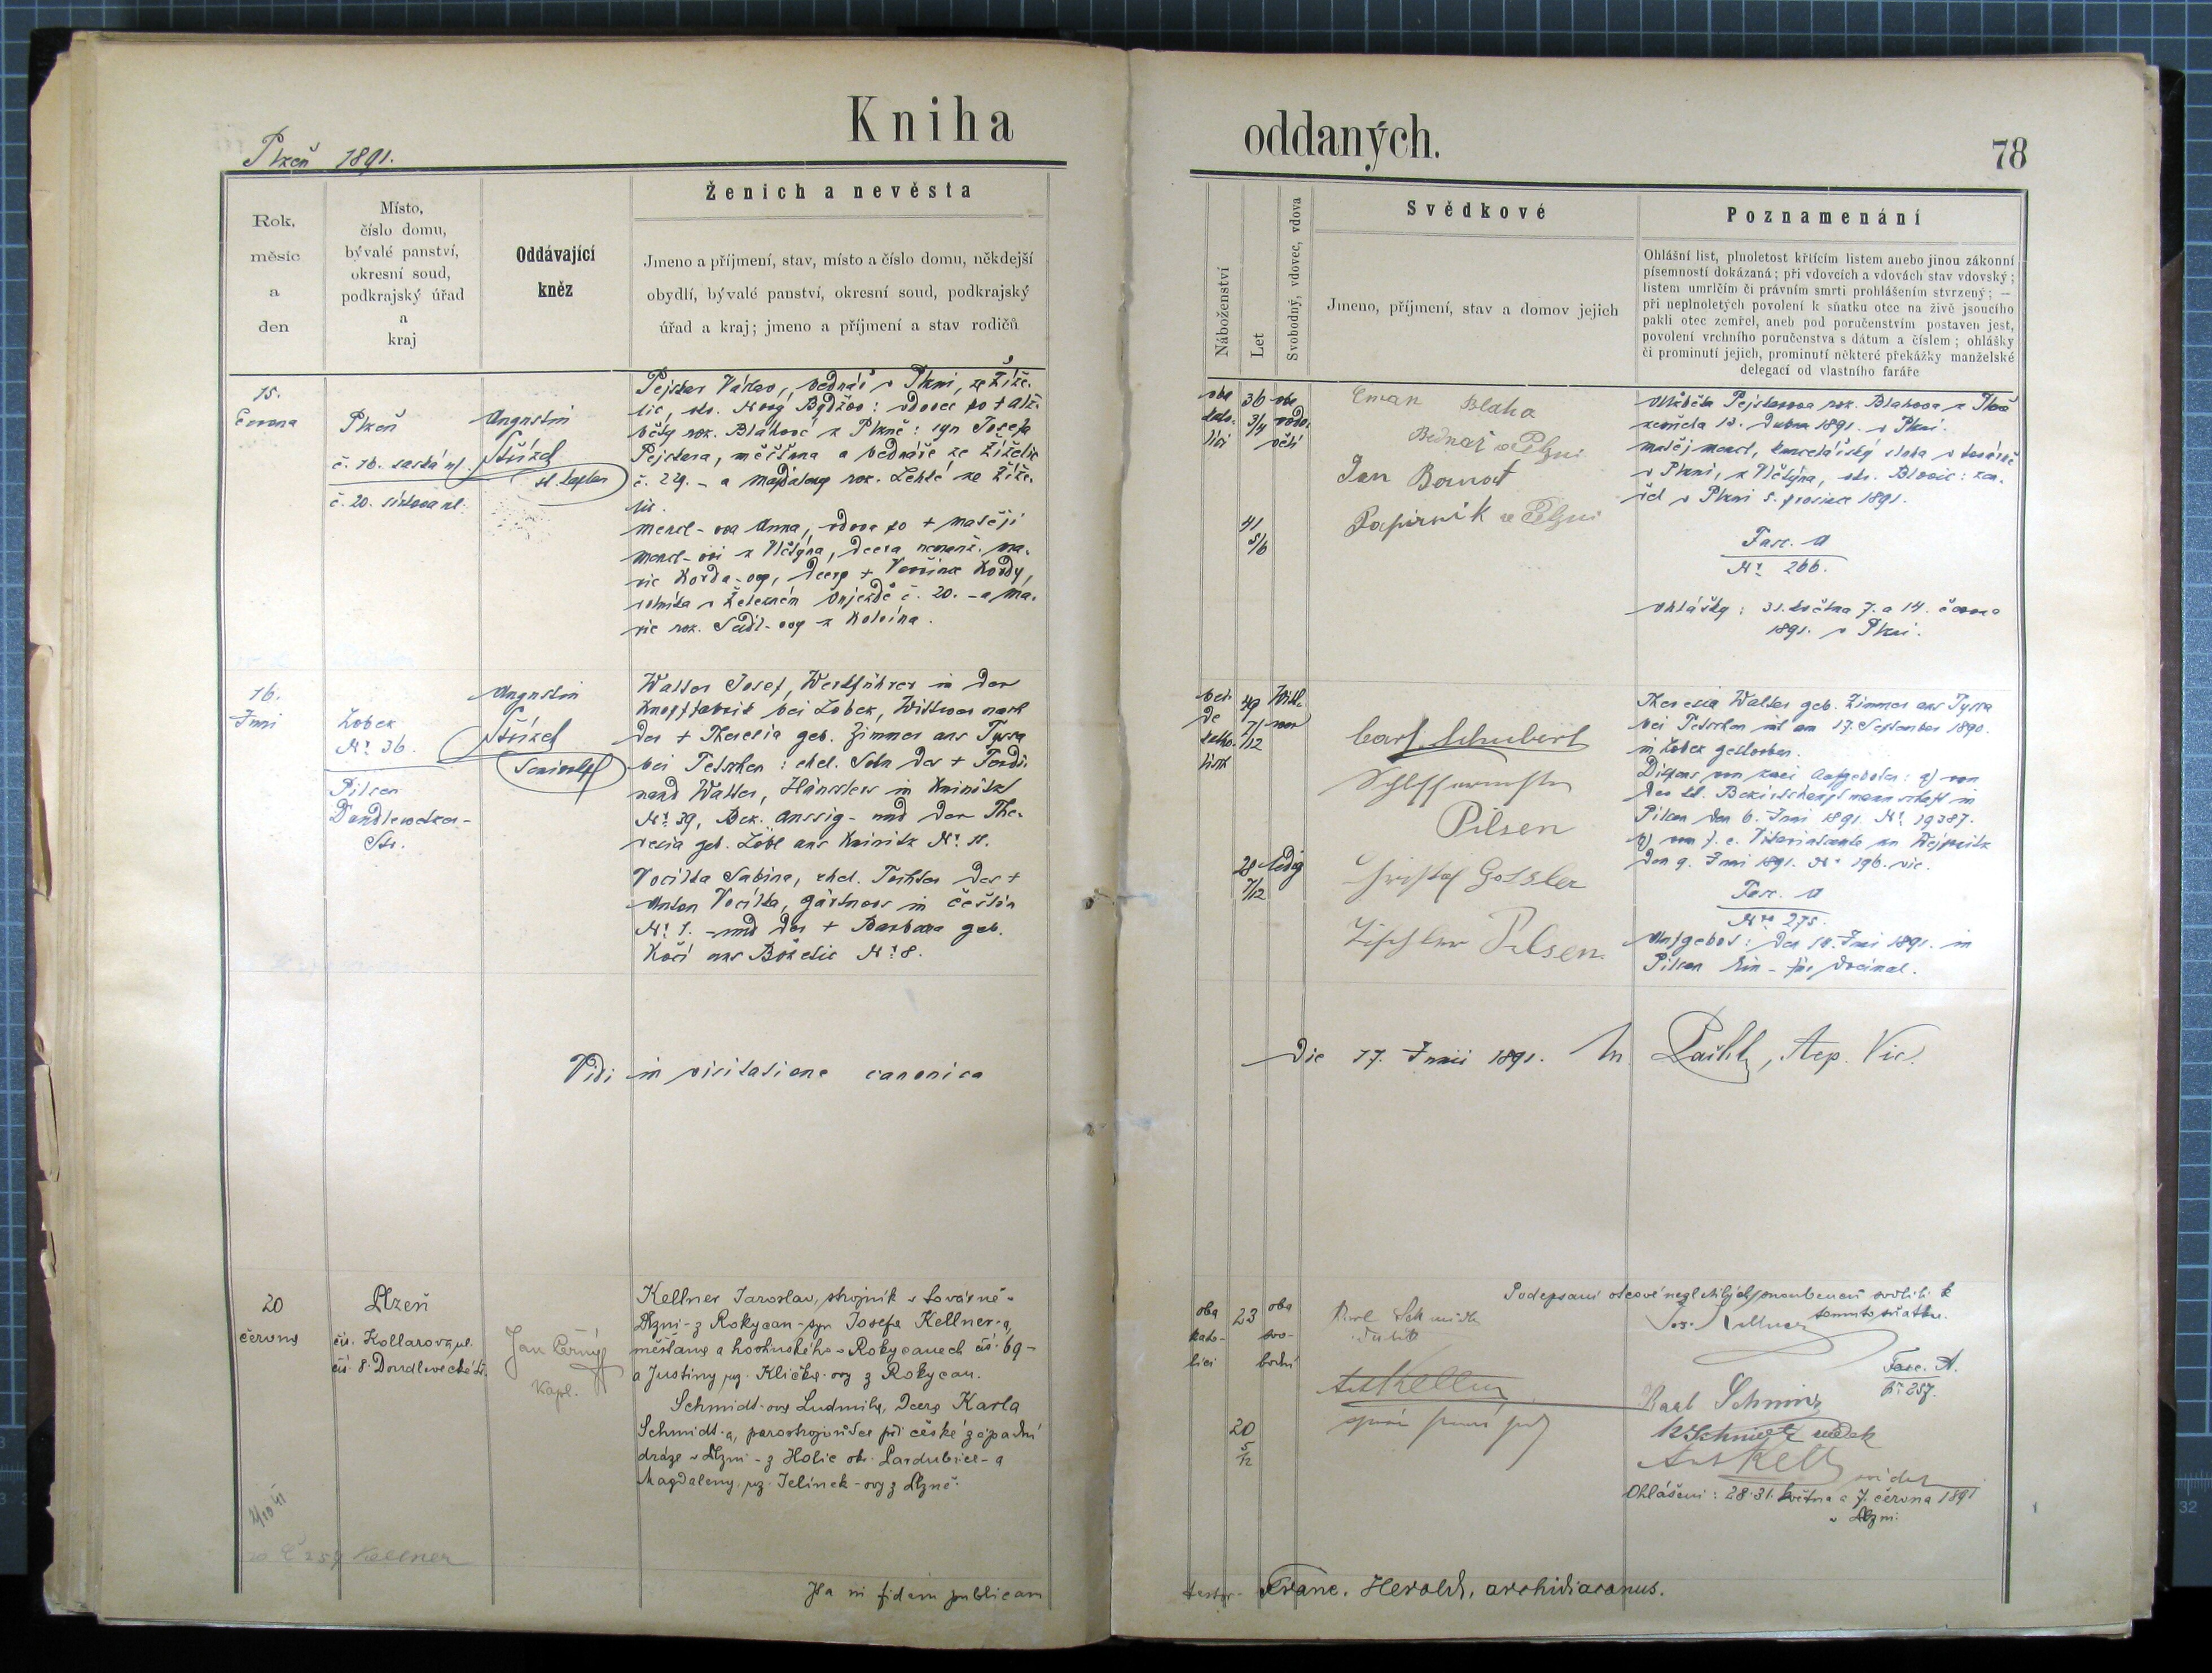 Kniha oddaných.
78
Plzeň 1891.
Rok,
měsíc
a
den
Místo,
číslo domu,
bývalé panství,
okresní soud,
podkrajský úřad
a
kraj
Oddávající
kněz
Ženich a nevěsta
Jmeno a příjmení, stav, místo a číslo domu, někdejší
obydlí, bývalé panství, okresní soud, podkrajský
úřad a kraj; jmeno a příjmení a stav rodičů
Náboženství
Let
Svobodný, vdovec, vdova
Svědkové
Jmeno, příjmení, stav a domov jejich
Poznamenání
Ohlášní list, plnoletost křtícím listem anebo jinou zákonní
písemností dokázaná; při vdovcích a vdovách stav vdovský;
listem umrlčím či právním smrti prohlášením stvrzený; —
při neplnoletých povolení k sňatku otce na živě jsoucího
pakli otec zemřel, aneb pod poručenstvím postaven jest,
povolení vrchního poručenstva s dátum a číslem; ohlášky
či prominutí jejich, prominutí některé překážky manželské
delegací od vlastního faráře
15.
června
Plzeň
č. 16.
č. 20.
Augustin
Střízel
Pejskar Václav, bednář v Plzni, ze Žíže-
lic, okr. Nový Bydžov: vdovec po + Alž-
běty roz. Bláhové z Plzně: syn Josefa
Pejskara, měšťana a bednáře ze Žíželic
č. 229. - a Magdaleny roz. ze Žíže-
lic.
Mencl-ova Anna, vdova po + Matěji
Mencl-ovi z Vlčtýna, dcera nemanž. Ma-
rie Korda-ovy, dcery + Kordy,
rolníka v Železném Újezdě č. 20. - a Ma-
rie roz. Sedl-ovy z Kolvína.
oba
kato-
líci
36
3/4
obe
vdo-
větí
41
5/6
Eman Blaha
Bednář v Plzni
Jan
Papírník v Plzni
Alžběta Pejskarova roz. Blahova z Plzně
zemřela 13. dubna 1891. v Plzni.
Matěj Mencl, kancelářský sluha v továrně
v Plzni, z Vlčtýna, okr. Blovic: zem-
řel v Plzni 5. prosince 1891.
Fasc. A
Nr. 266.
Ohlášky: 31. května 7. a 14. června
1891. v Plzni.
16.
Juni
Lobes
Nr. 36.
Pilsen
Dondlewetzer-
Str.
Augustin
Střízel
Walter Josef, Werkführer in der
Knopffabrik bei Lobes, Wittwer nach
der + Theresia geb. Zimmer aus Tyssa
bei Tetschen: ehel. Sohn des + Ferdi-
nand Walter, Häusslers in Kninitz
Nr. 39, Bez. Aussig - und der The-
resia geb. Löbl aus Kninitz Nr. 11.
Vocilka Sabina, ehel. Tochter des +
Anton Vocilka, Gärtners in Češtín
Nr. 1. - und der + Barbara geb.
Kočí aus Bözdic Nr. 8.
bei-
de
katho-
lisch
Witt-
wer
28
7/12
ledig
Carl Schubert
Pilsen
Gössler
Tischler Pilsen
Theresia Walter geb. Zimmer aus Tyssa
bei Tetschen ist am 17. September 1890.
in Lobes gestorben.
Dispens von zwei Aufgeboten: a) von
der kk. Bezirkshauptmannschaft in
Pilsen den 6. Juni 1891. Nr. 19387.
b) vom f. e. Vikariatsamte in Wejprnitz
den 9. Juni 1891. Nr. 196. vic.
Fasc. A
Nr. 275.
Aufgebot: den 14. Juni 1891. in
Pilsen Ein- für dreimal.
Vidi in visitatione canonica
Die 17. Junii 1891. Aep. Vic.
20
června
Plzeň
čís. Kollarova ul.
čís. 8. Doudlevecká tř.
Jan Černý
kapl.
Kellner Jaroslav, strojník v továrně v
Plzni - z Rokycan - syn Josefa Kellner-a,
měšťana a hostinského v Rokycanech čís. 69 -
a Justiny roz. Kličky-ovy z Rokycan.
Schmidt-ova Ludmila, dcera Karla
Schmidt-a, parostrojvůdce při české západní
dráze v Plzni - z Holic okr. Pardubice - a
Magdaleny roz. Jelínek-ovy z Plzně.
oba
kato-
líci
23
oba
svo-
bodní
20
5
12
Karl Schmidt
Ant Kellner
Podepsaní otcové nezletilých snoubenců svolili k
tomuto sňatku.
Jos. Kellner
Fasc. A.
Nr. 257.
Karl Schmidt
K Schmidt svědek
Ant Kelln svědek
Ohlášení: 28. 31. května a 7. června 1891
v Plzni.
Kellner
Ita in fidem publicam
testor Franc. Herold, archidiaconus.